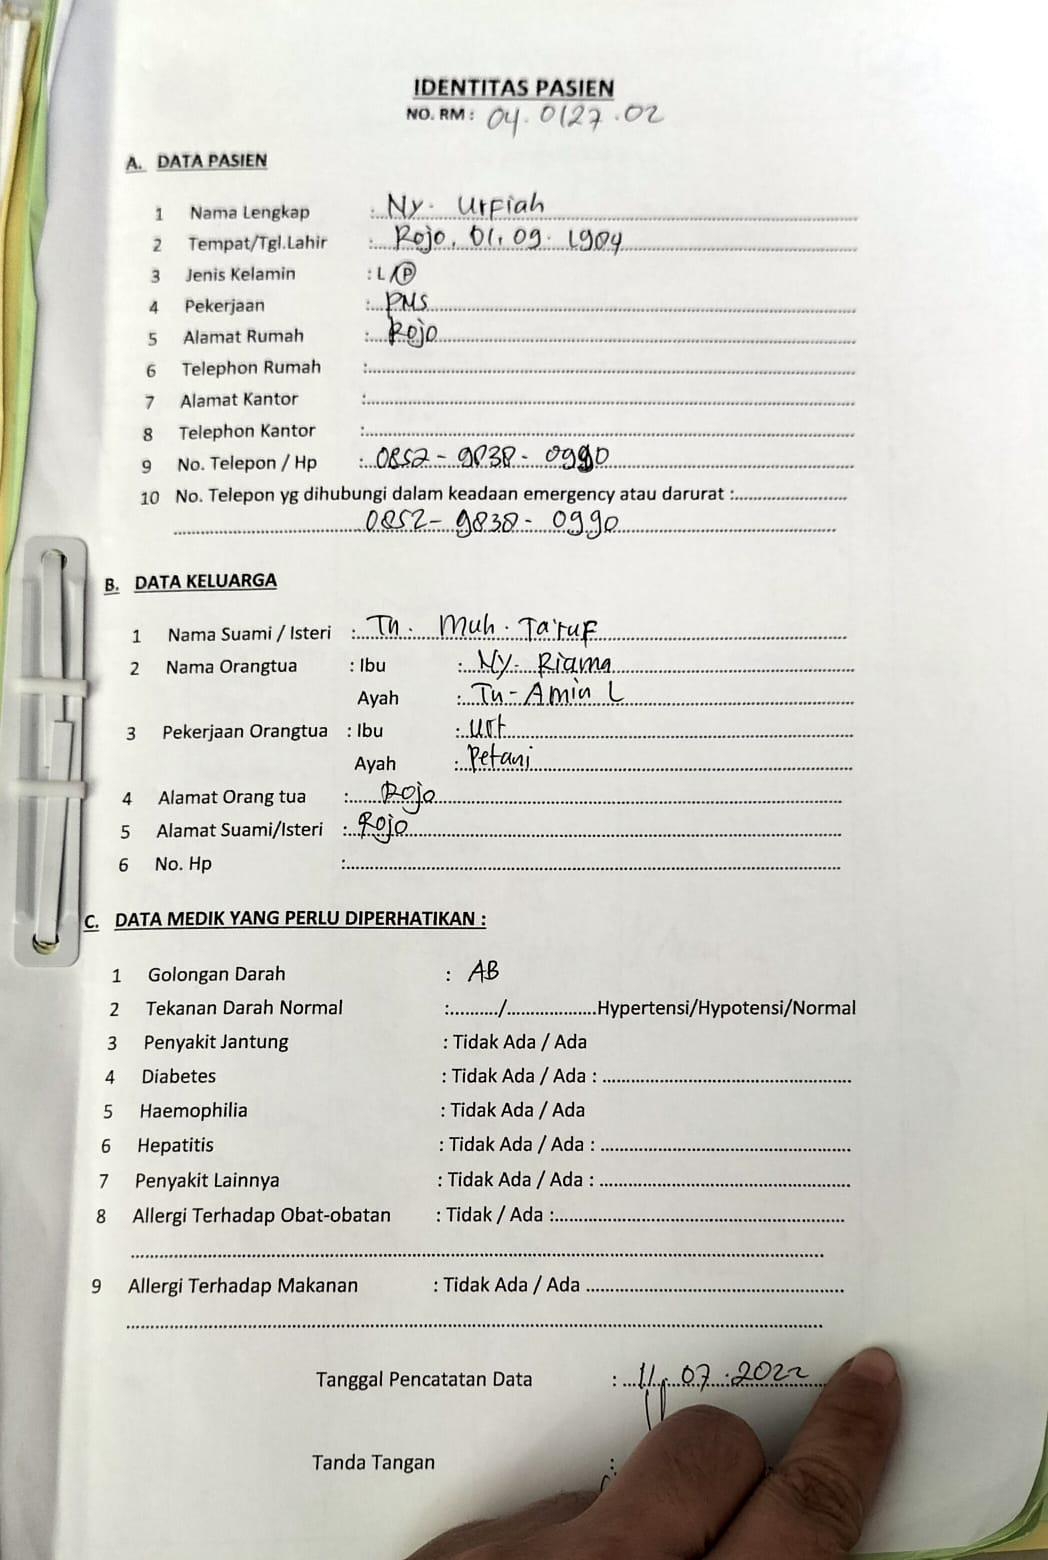 IDENTITAS PASIEN
NO. RM : 04.0127.02
A. DATA PASIEN
1 Nama Lengkap : Ny. Urfiah
2 Tempat/Tgl.Lahir : Rojo, 01.09.1984
3 Jenis Kelamin : L / P
4 Pekerjaan : PNS
5 Alamat Rumah : Rojo
6 Telephon Rumah :
7 Alamat Kantor :
8 Telephon Kantor :
9 No. Telepon / Hp : 0852 - 9838 - 0990
10 No. Telepon yg dihubungi dalam keadaan emergency atau darurat :
0852 - 9838 - 0990
B. DATA KELUARGA
1 Nama Suami / Isteri : Tn. Muh. Ta'ruf
2 Nama Orangtua : Ibu : Ny. Riama
Ayah : Tn - Amin L
3 Pekerjaan Orangtua : Ibu : Urt
Ayah : Petani
4 Alamat Orang tua : Rojo
5 Alamat Suami/Isteri : Rojo
6 No. Hp :
C. DATA MEDIK YANG PERLU DIPERHATIKAN :
1 Golongan Darah : AB
2 Tekanan Darah Normal :........./..................Hypertensi/Hypotensi/Normal
3 Penyakit Jantung : Tidak Ada / Ada
4 Diabetes : Tidak Ada / Ada :
5 Haemophilia : Tidak Ada / Ada
6 Hepatitis : Tidak Ada / Ada :
7 Penyakit Lainnya : Tidak Ada / Ada :
8 Allergi Terhadap Obat-obatan : Tidak / Ada :
9 Allergi Terhadap Makanan : Tidak Ada / Ada
Tanggal Pencatatan Data : 11. 07. 2022
Tanda Tangan :